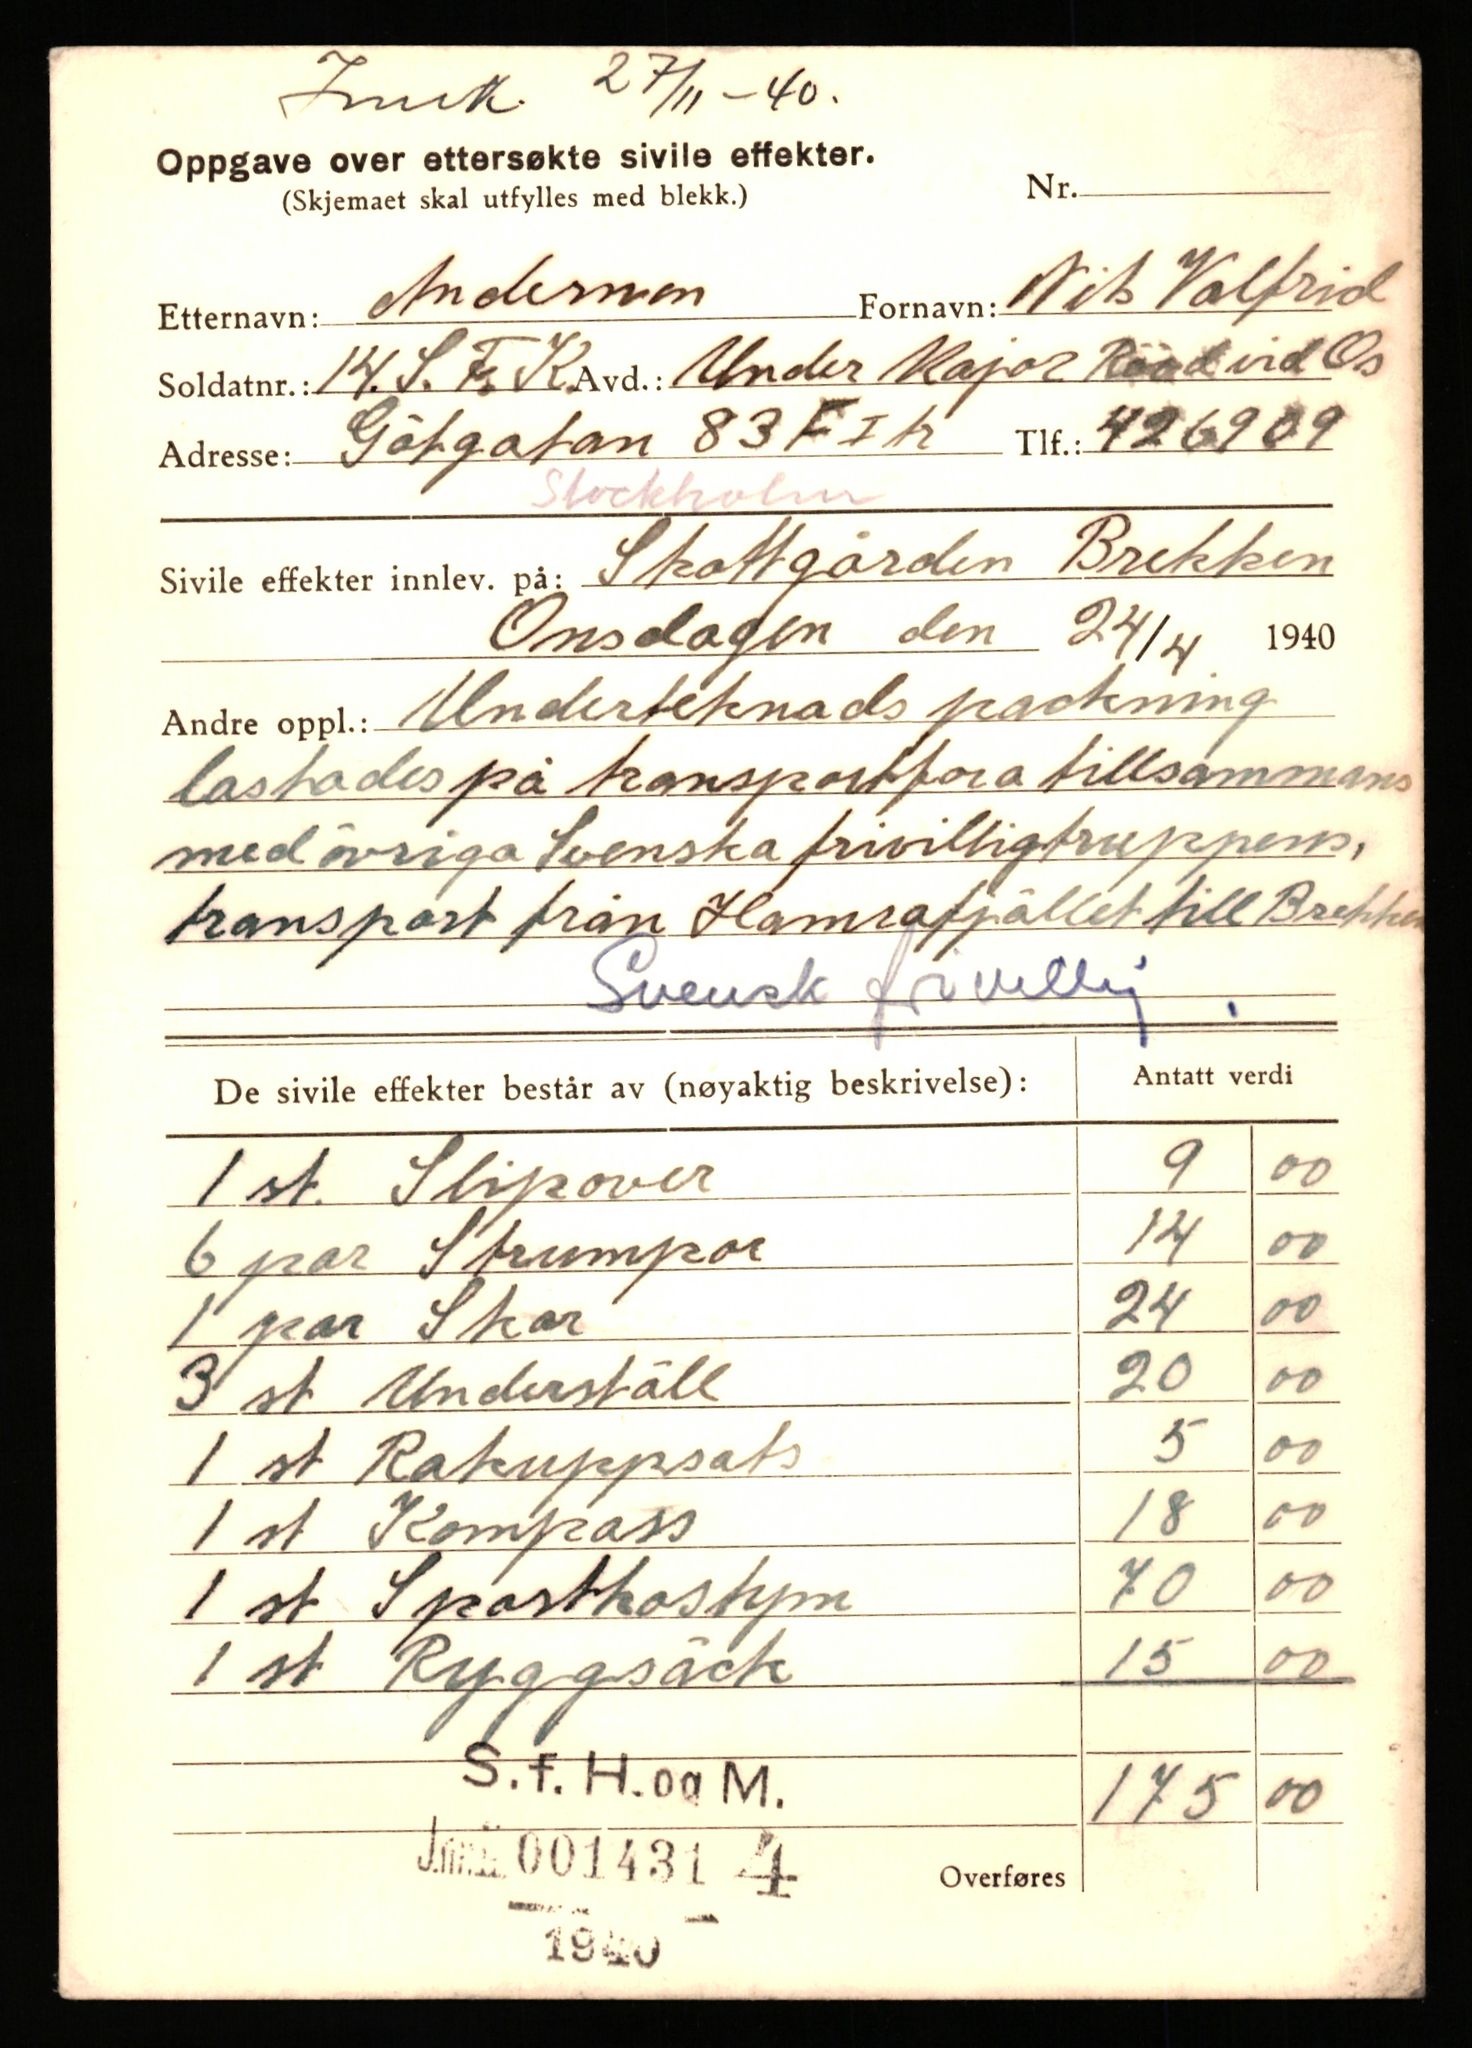 27/11 - 40.
Oppgave over ettersøkte sivile effekter.
(Skjemaet skal utfylles med blekk.)
Nr.
Etternavn: Andersson Fornavn: Nils Valfrid
Soldatnr.: 14. S. Fr. K. Avd.: Under Major Rööd vid Os
Adresse: Götgatan 83 F I tr Tlf.: 426909
Stockholm
Sivile effekter innlev. på: Skottgården Brekken
Onsdagen den 24/4 1940
Andre oppl.: Underteknads packning
lastades på transportfora tillsammans
med övriga Svenska frivilligtruppens,
transport från Hamrafjället till Brekken
Svensk frivillig.
De sivile effekter består av (nøyaktig beskrivelse): Antatt verdi
1 st. Slipover 9 00
6 par Strumpor 14 00
1 par Skor 24 00
3 st Underställ 20 00
1 st Rakuppsats 5 00
1 st Kompass 18 00
1 st Sportkostym 70 00
1 st Ryggsäck 15 00
S.f. H. og M.
175 00
J.nr. 001431 4
Overføres
1940